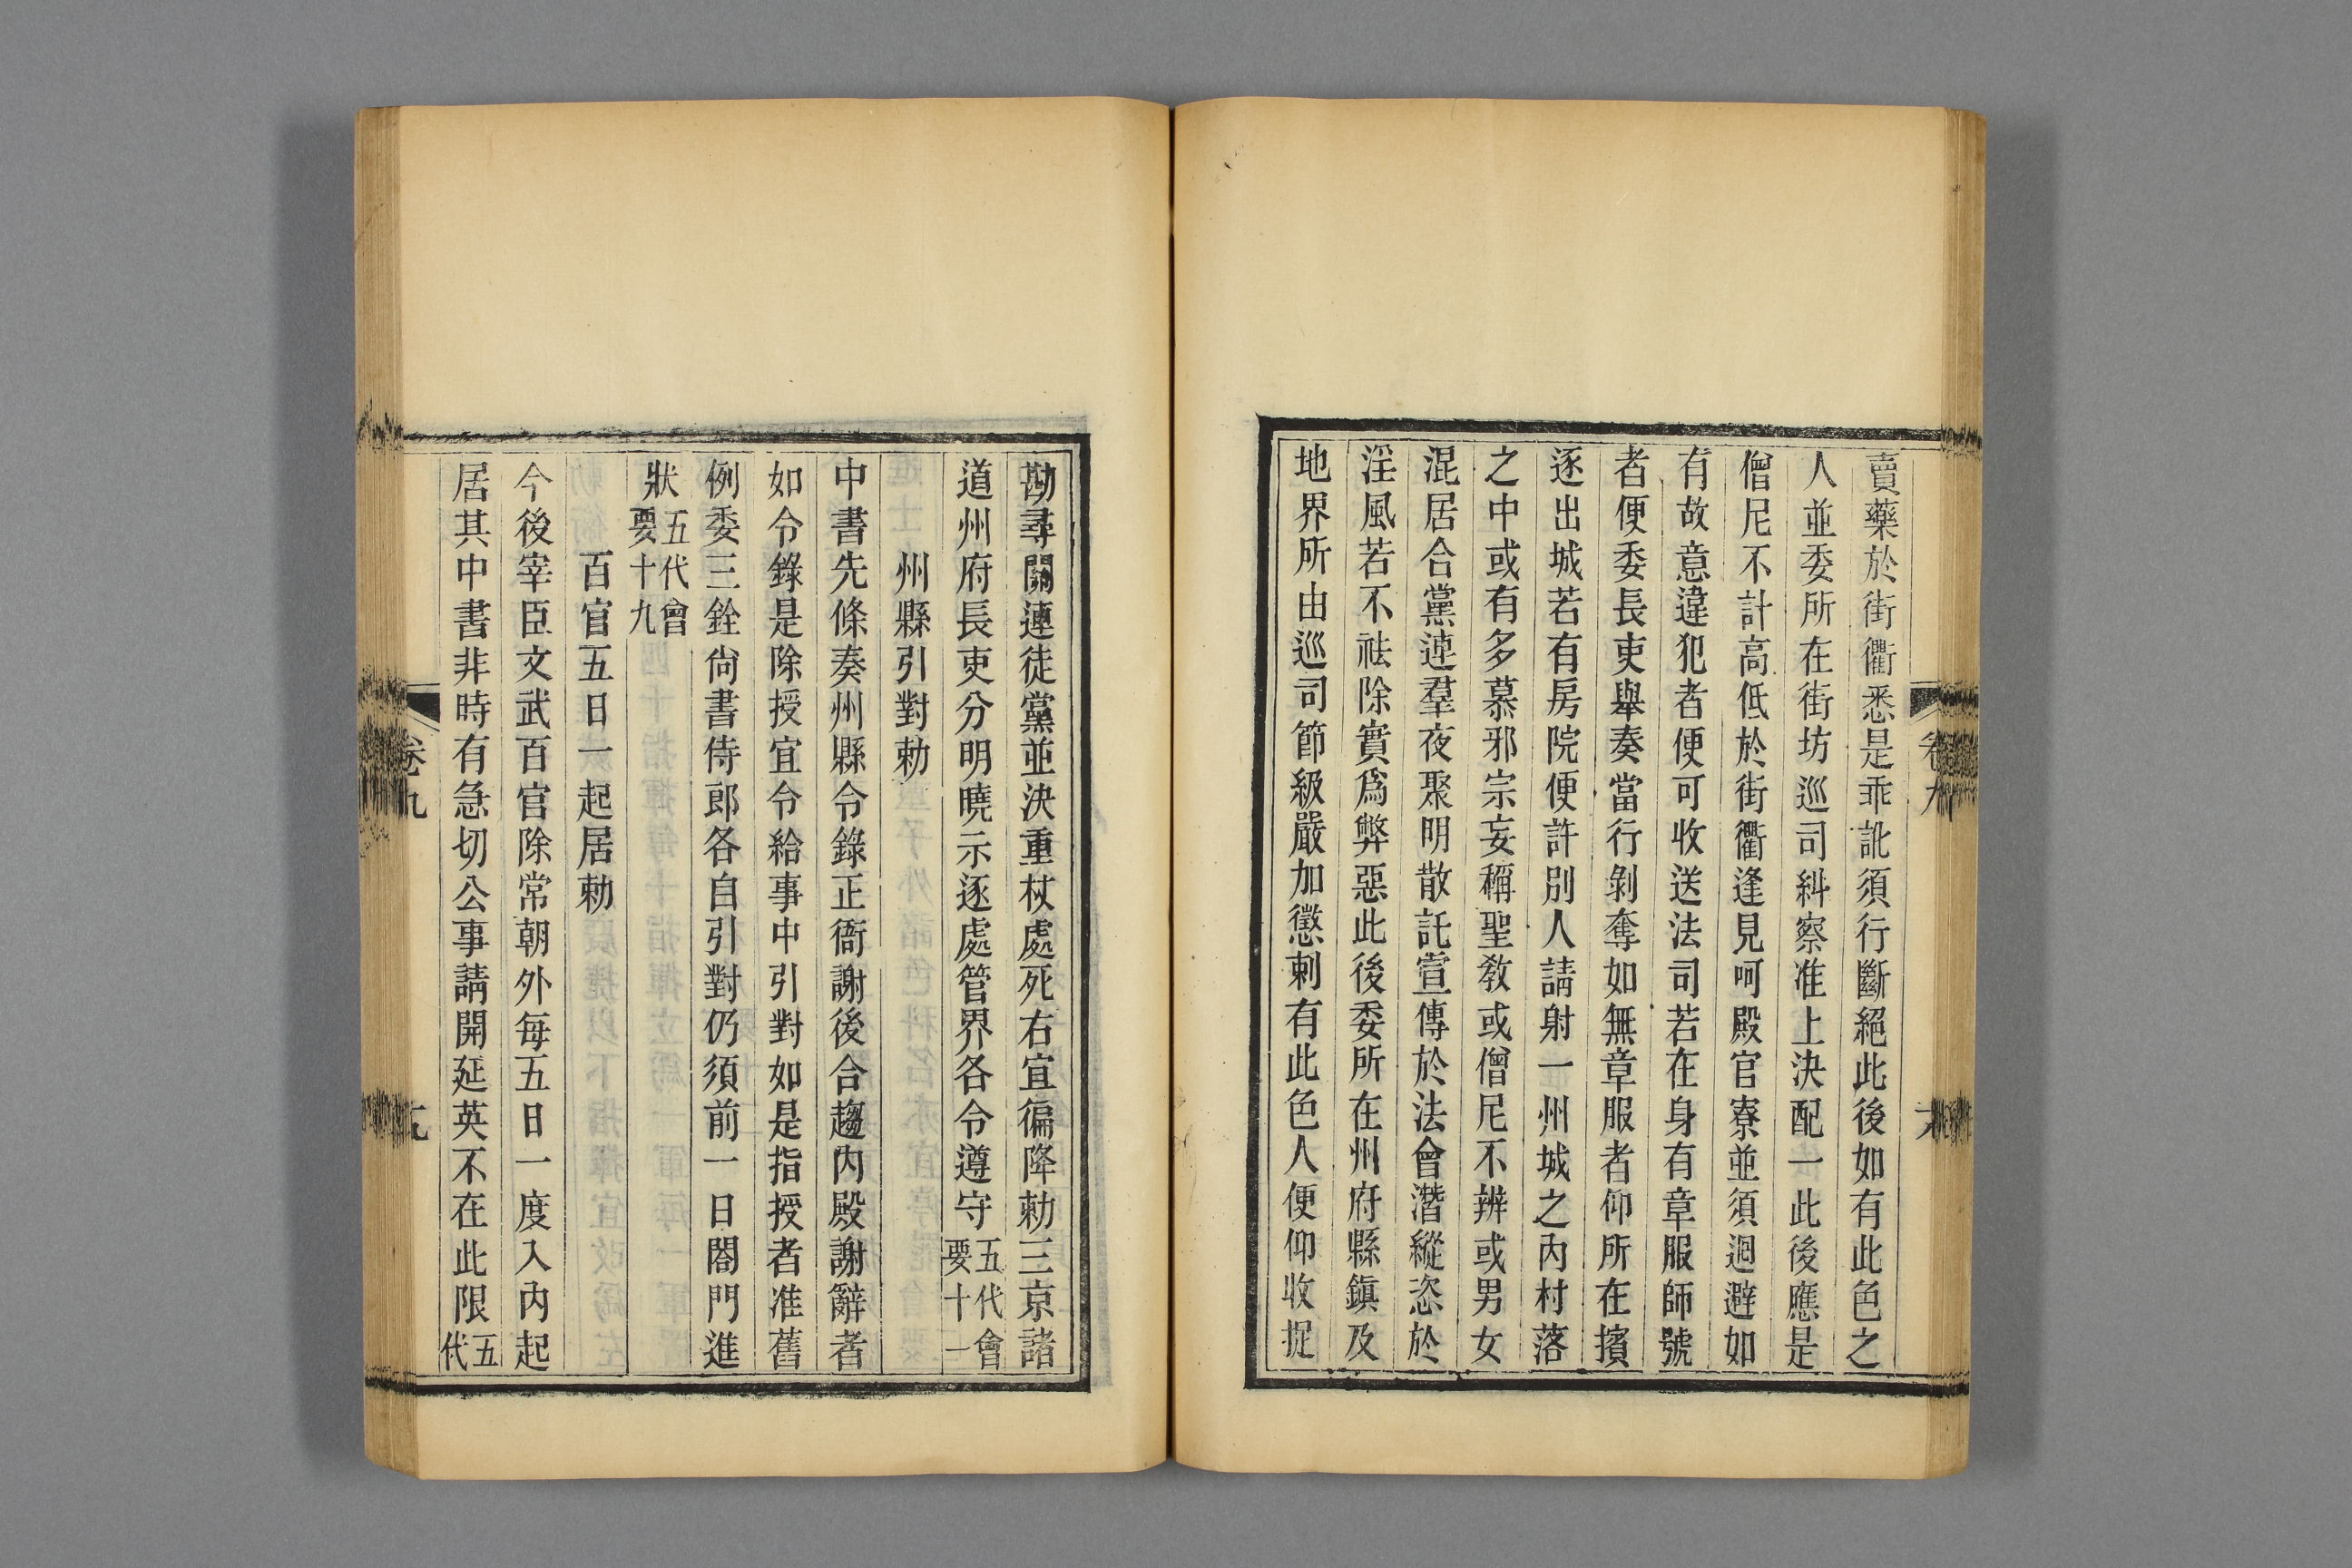 賣藥於街衢悉是乖訛須行斷絕此後如有此色之
人並委所在街坊巡司糾察准上決配一此後應是
僧尼不計高低於街衢逢見呵殿官寮並須迴避如
有故意違犯者便可收送法司若在身有章服師號
者便委長吏舉奏當行剝奪如無章服者仰所在擯
逐出城若有房院便許別人請射一州城之內村落
之中或有多慕邪宗妄稱聖教或僧尼不辨或男女
混居合黨連羣夜聚明散託宣傳於法會潛縱恣於
淫風若不祛除實爲弊惡此後委所在州府縣鎮及
地界所由巡司節級嚴加懲刺有此色人便仰收捉
卷九
勘尋關連徒黨並決重杖處死右宜徧降勅三京諸
道州府長吏分明曉示逐處管界各令遵守五代會
要十一
州縣引對勅
中書先條奏州縣令錄正衙謝後合趨內殿謝辭者
如令錄是除授宜令給事中引對如是指授者准舊
例委三銓尙書侍郎各自引對仍須前一日閤門進
狀五代會
要十九
百官五日一起居勅
今後宰臣文武百官除常朝外每五日一度入內起
居其中書非時有急切公事請開延英不在此限五
代
卷九